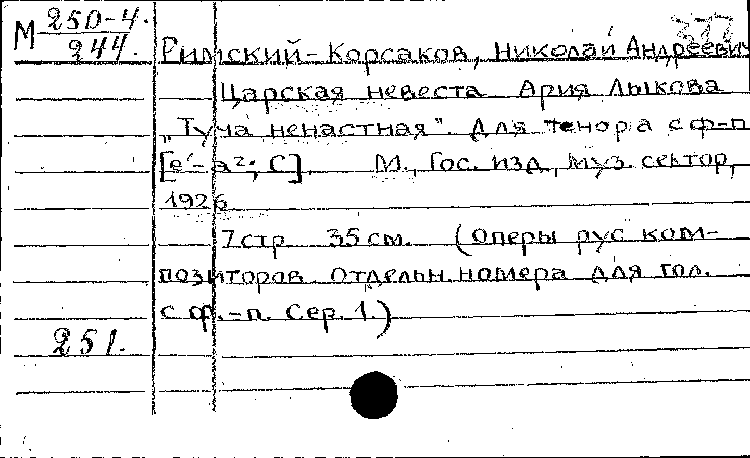 М 250-4.
244.
377
Римский-Корсаков, Николай Андреевич
Царская невеста Ария Лыкова
„Туча ненастная". Для тенора с ф-п
[e'-a²; C]. М., Гос. изд, муз. сектор,
1926
7 стр 35 см. (Оперы рус ком-
позиторов. Отдельн. номера для гол.
с ф.-п. Сер. 1.)
251.